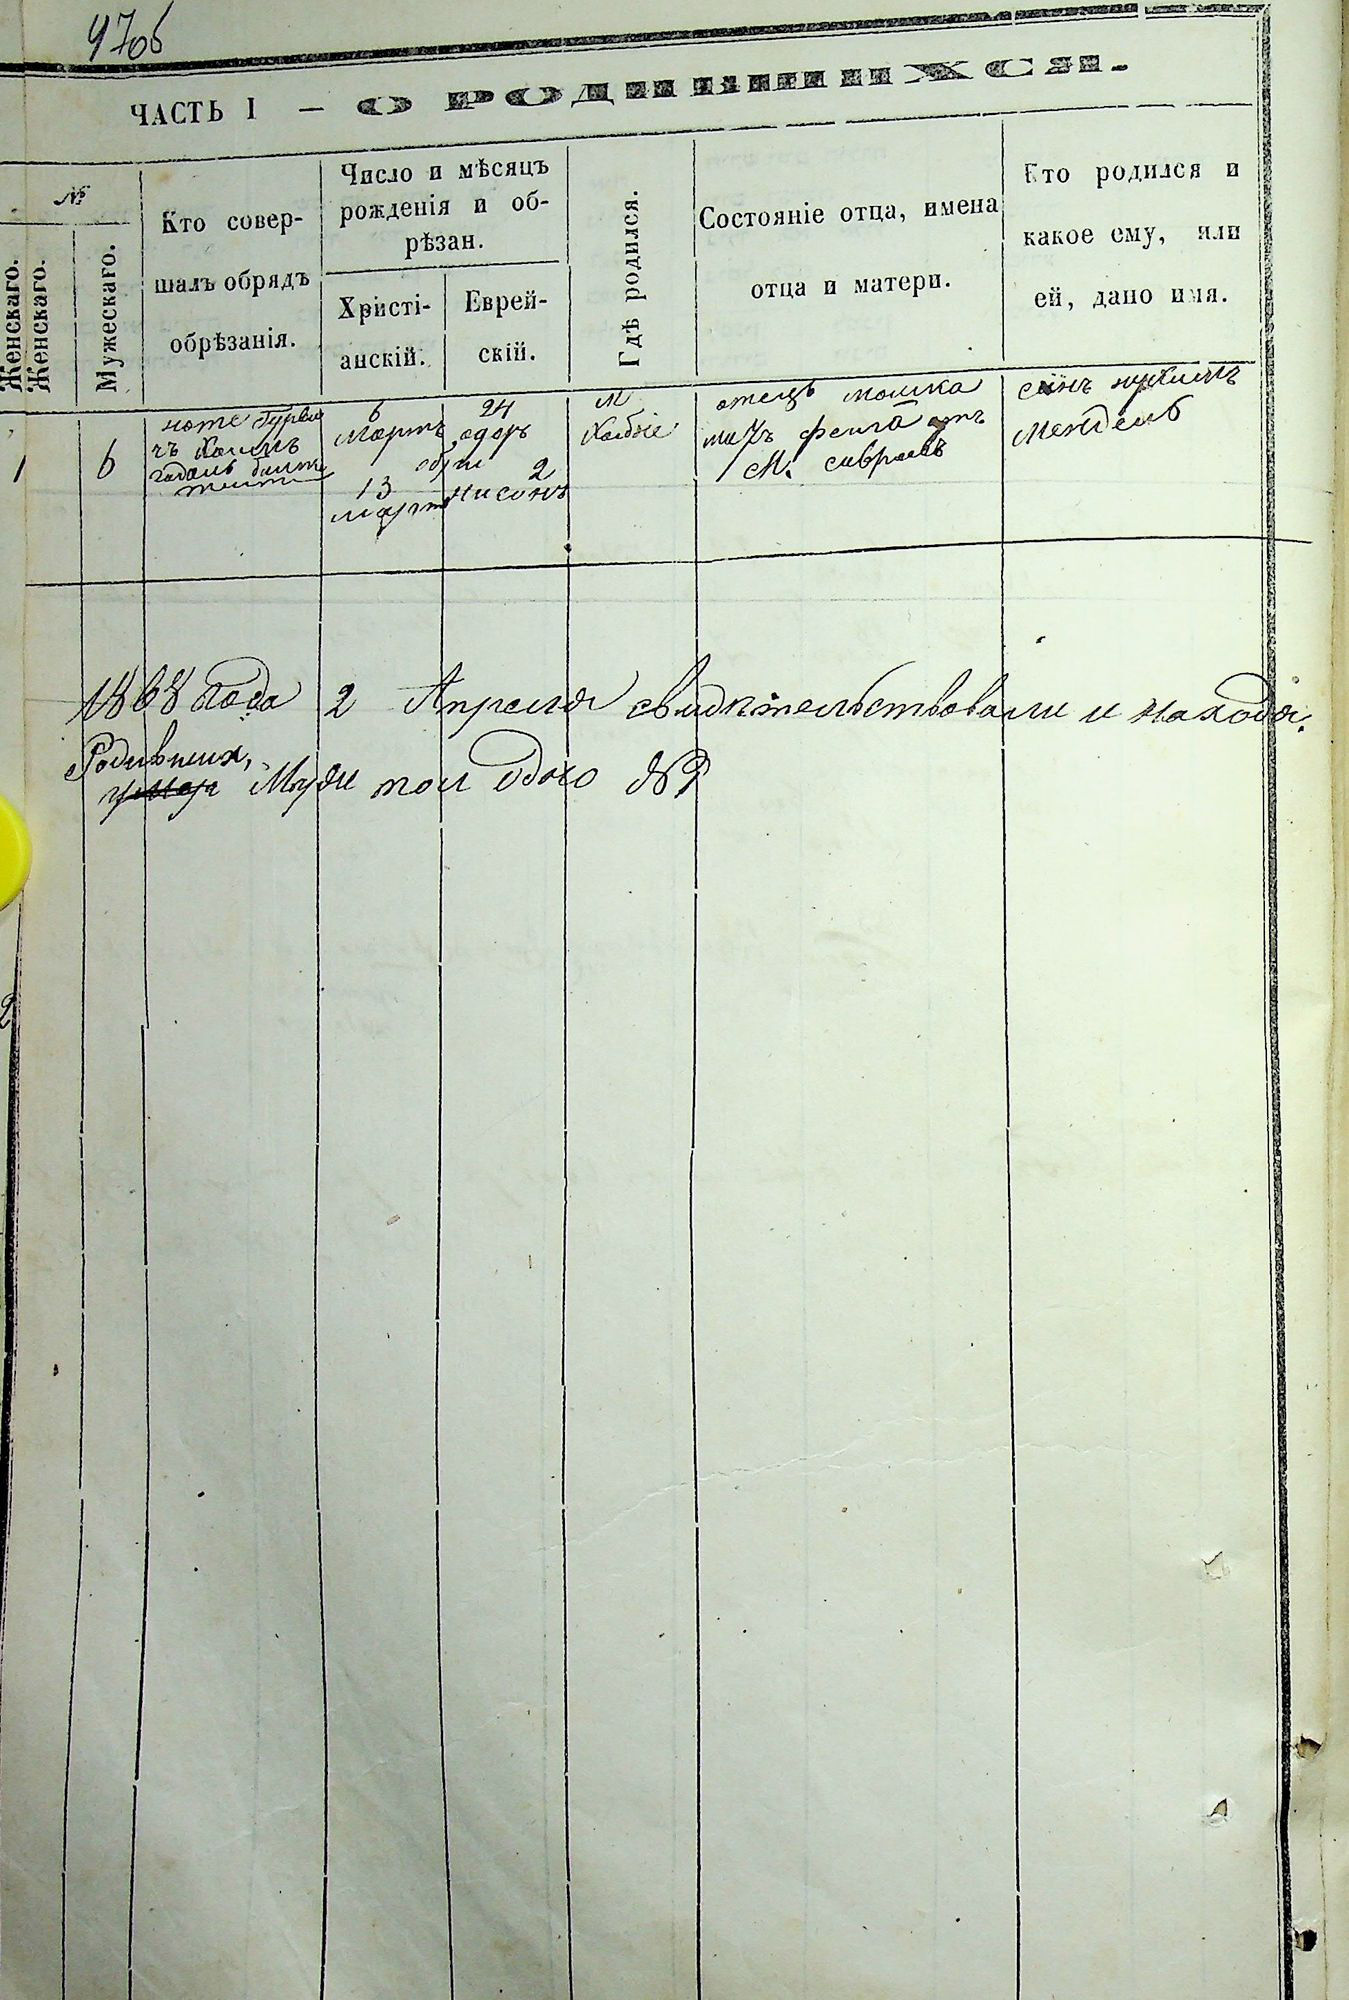 470б
ЧАСТЬ I — О РОДИВШИХСЯ.
№
Женскаго.
Женскаго.
Мужескаго.
Кто совер-
шалъ обрядъ
обрѣзанія.
Число и мѣсяцъ
рожденія и об-
рѣзан.
Христі-
анскій.
Еврей-
скій.
Гдѣ родился.
Состояніе отца, имена
отца и матери.
Кто родился и
какое ему, или
ей, дано имя.
1
6
ноте Гурви
чъ Хаимъ
6
мартъ
13
мартъ
24
адоръ
2
нисонъ
М
отецъ мошка
фейга отъ
М.
сынъ
мендель
1868 года 2 Апреля свидѣтельствовали и находя.
Родивших,
одого №
2